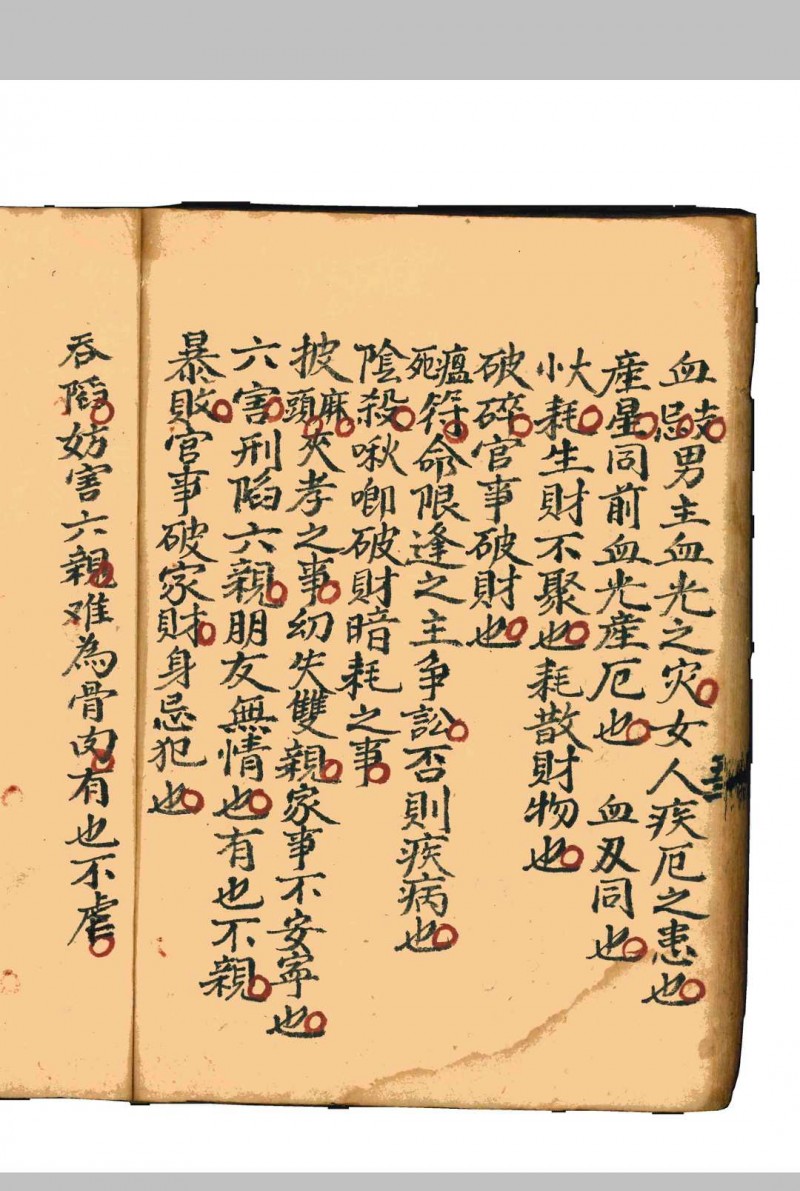 血忌支男主血光之灾女人疾厄之患也
産星同前血光産厄也 血刄同也
大小耗生財不聚也耗散財物也
破碎官事破財也
瘟死符命限逢之主争訟否則疾病也
陰殺啾唧破財暗耗之事
披麻頭夾孝之事幼失雙親家事不安寧也
六害刑陷六親朋友無情也有也不親
暴敗官事破家財身忌犯也
吞陷妨害六親难為骨肉有也不虐